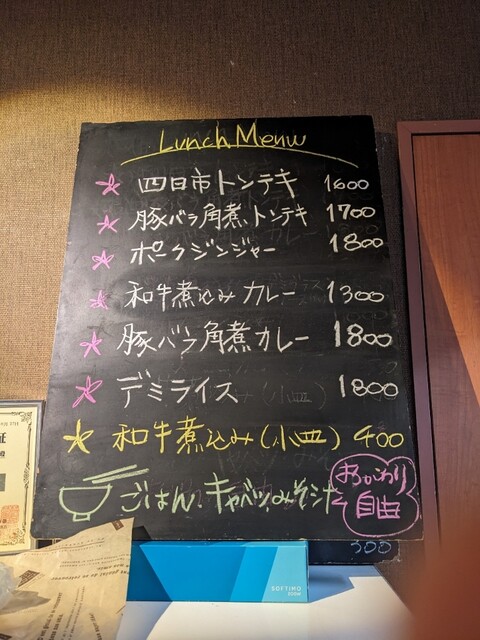 Lunch Menu
四日市トンテキ 1600
豚バラ角煮トンテキ 1700
ポークジンジャー 1800
和牛煮込みカレー 1300
豚バラ角煮カレー 1800
デミライス 1800
和牛煮込み(小皿) 400
ごはん、キャベツ、みそシル
おかわり
自由
300
SOFTIMO